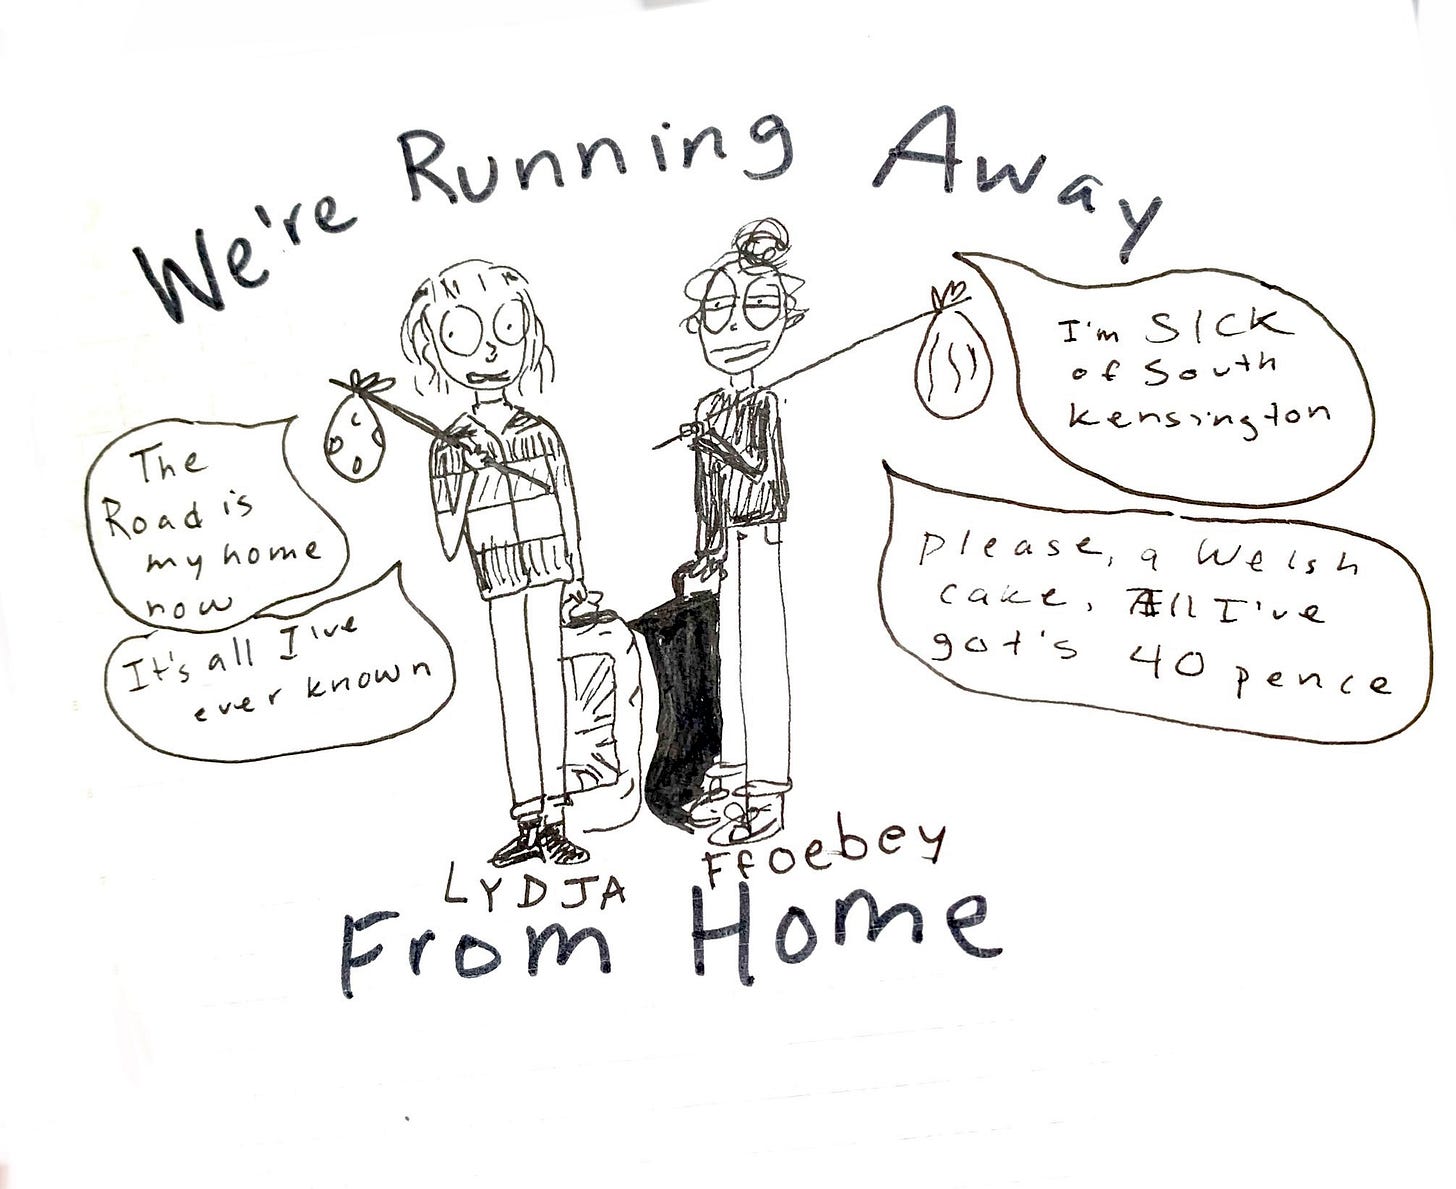 We're Running Away
The
Road is
my home
now
It's all I've
ever known
I'm SICK
of South
Kensington
please, a Welsh
cake, All I've
got's 40 pence
LYDJA
Ffoebey
From Home